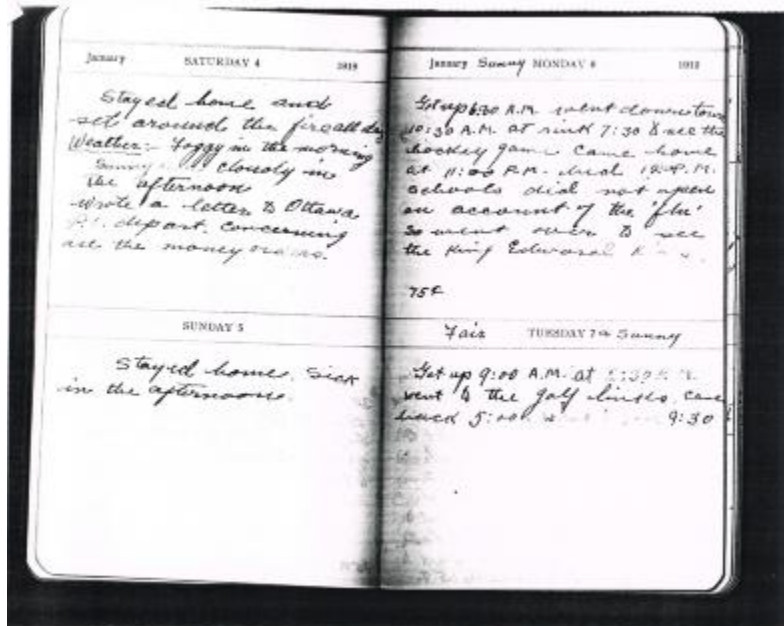 January SATURDAY 4 1919
Stayed home and
set around the fire all day
Weather:- Foggy in the morning
Sunny & cloudy in
the afternoon
wrote a letter to Ottawa
depart. concerning
all the money
SUNDAY 5
Stayed home. Sick
in the afternoon.
January Sunny MONDAY 6 1919
Got up 6:30 A.M. went down town
10:30 A.M. at rink 7:30 to see the
hockey game came home
at 11:00 P.M. bed 12 P.M.
schools did not open
on account of the 'flu'
so went over to see
the King Edward
75¢
Fair TUESDAY 7 Sunny
Got up 9:00 A.M. at
went to the golf links. came
back 5:00 9:30